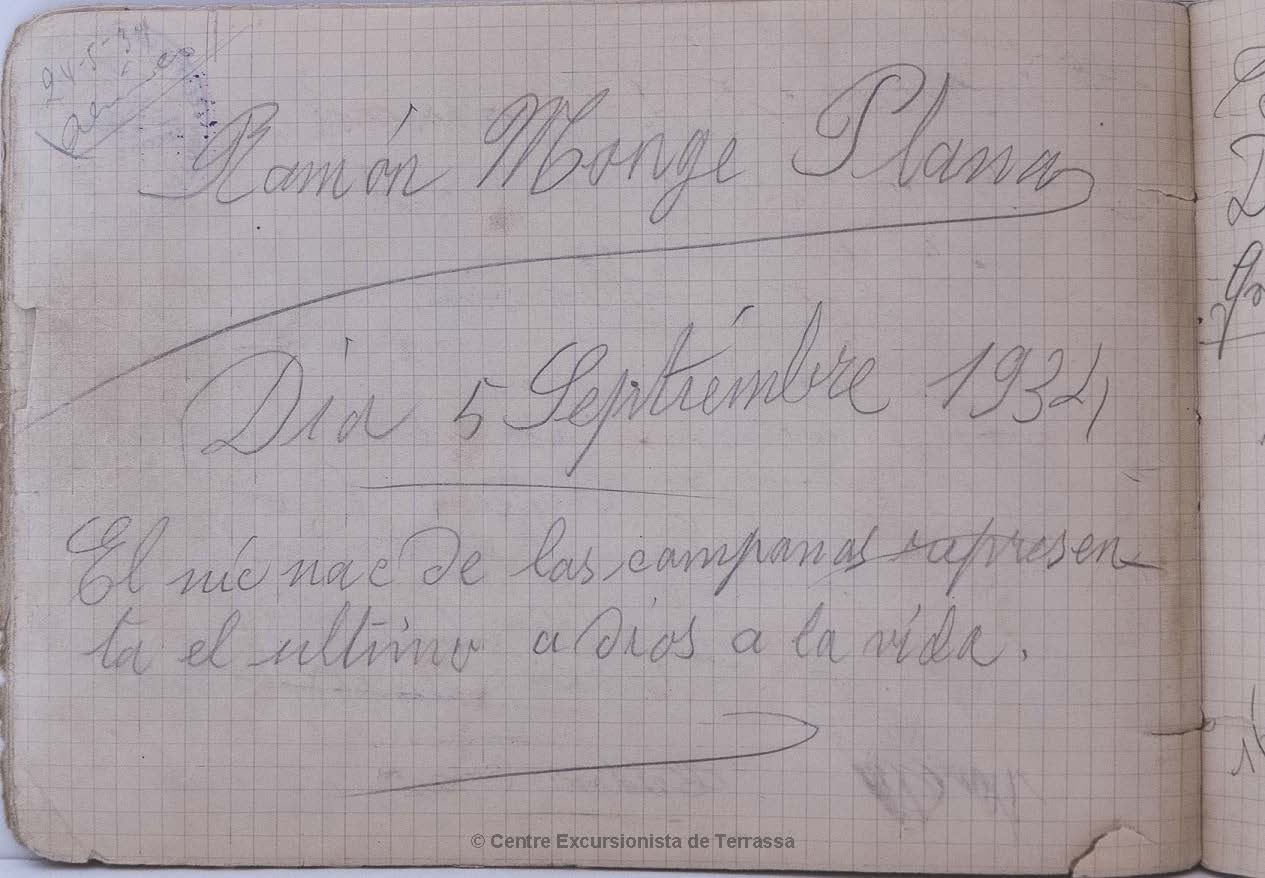 24-5-34
Ramón Monge Plana
Día 5 Septiembre 1934
El nic nac de las campanas rapresen
ta el ultimo adios a la vida.
© Centre Excursionista de Terrassa